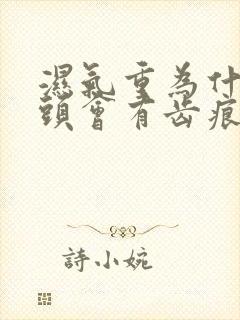 濕氣重為什
頭會有齿痕
詩小婉